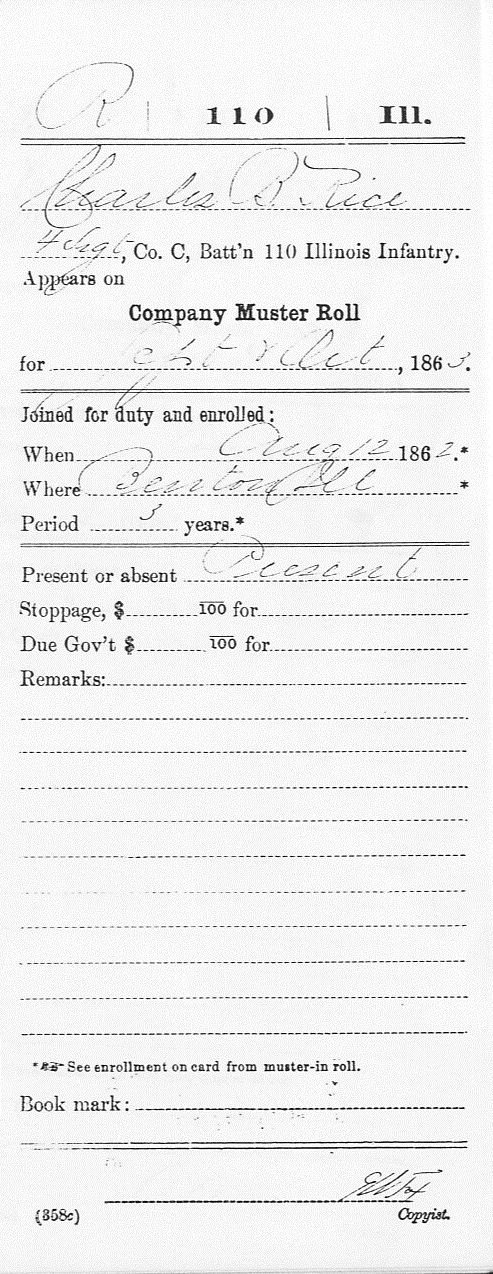 R | 110 | Ill.
Charles B. Rice
4 Sergt, Co. C, Batt'n 110 Illinois Infantry.
Appears on
Company Muster Roll
for Sept & Oct, 1863.
Joined for duty and enrolled:
When Aug 12 1862.*
Where Benton Ill *
Period 3 years.*
Present or absent Present
Stoppage, $ 100 for
Due Gov't $ 100 for
Remarks:
* See enrollment on card from muster-in roll.
Book mark:
(358c) Copyist.